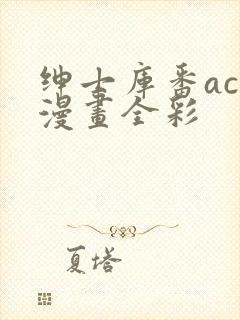 绅士库番ac
漫畫全彩
夏塔